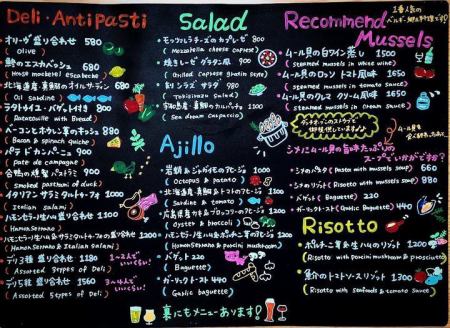 Deli・Antipasti
オリーヴ盛り合わせ 580
( olive )
鯵のエスカベッシュ 680
( Horse mackerel escabeche )
北海道産真鰯のオイルサーディン 680
( Oil Sardine )
ラタトゥイユ・バゲット付き 800
( Ratatouille with Bread )
ベーコンとホウレン草のキッシュ 880
( Bacon & spinach quiche )
パテドカンパーニュ 900
( Pate de campagne )
合鴨の燻製パストラミ 900
( Smoked pastrami of duck )
イタリアンサラミ 1000
( Italian salami )
ハモンセラーノ生ハム盛り合わせ 1100
( Hamon Serrano )
1200
( Hamon Serrano & Italian salami )
デリ3種盛り 1180
( Assorted 3types of Deli )
1〜2人で
いいくらい!
デリ5種盛り 1560
( Assorted 5 types of Deli )
3〜4人で
いいくらい!
Salad
モッツァレラチーズのカプレーゼ 900
( Mozzarella cheese caprese )
焼きレーゼ グラタン風 900
( Grilled caprese gratin style )
サラダ 980
1200
( Sea bream carpaccio )
Ajillo
岩蛸&ジャガイモのアヒージョ 1000
( Octopus & potato )
北海道産真鰯&トマトのアヒージョ 1000
( Sardine & tomato )
広島県産カキ&ブロッコリーのアヒージョ 1000
( Oyster & broccoli )
1200
( Hamon Serrano & porcini mushroom )
バゲット 220
( Baguette )
ガーリックトースト 440
( Garlic baguette )
裏にもメニューあります!
Recommend
Mussels
1番人気の
ムール貝の白ワイン蒸し 1500
( Steamed mussels in white wine )
ムール貝のロッソ トマト風味 1650
( Steamed mussels in tomato sauce )
ムール貝のクレマ クリーム風味 1650
( Steamed mussels in cream sauce )
シメにムール貝の旨味たっぷりの
スープでいかがですか?
シメのパスタ ( Pasta with mussels soup ) 660
シメのリゾット ( Risotto with mussels soup ) 880
バゲット ( Baguette ) 220
ガーリックトースト ( Garlic Baguette ) 440
Risotto
ポルチーニ茸&生ハムのリゾット 1200
( Risotto with porcini mushroom & prosciutto )
魚介のトマトソースリゾット 1300
( Risotto with seafoods & tomato sauce )